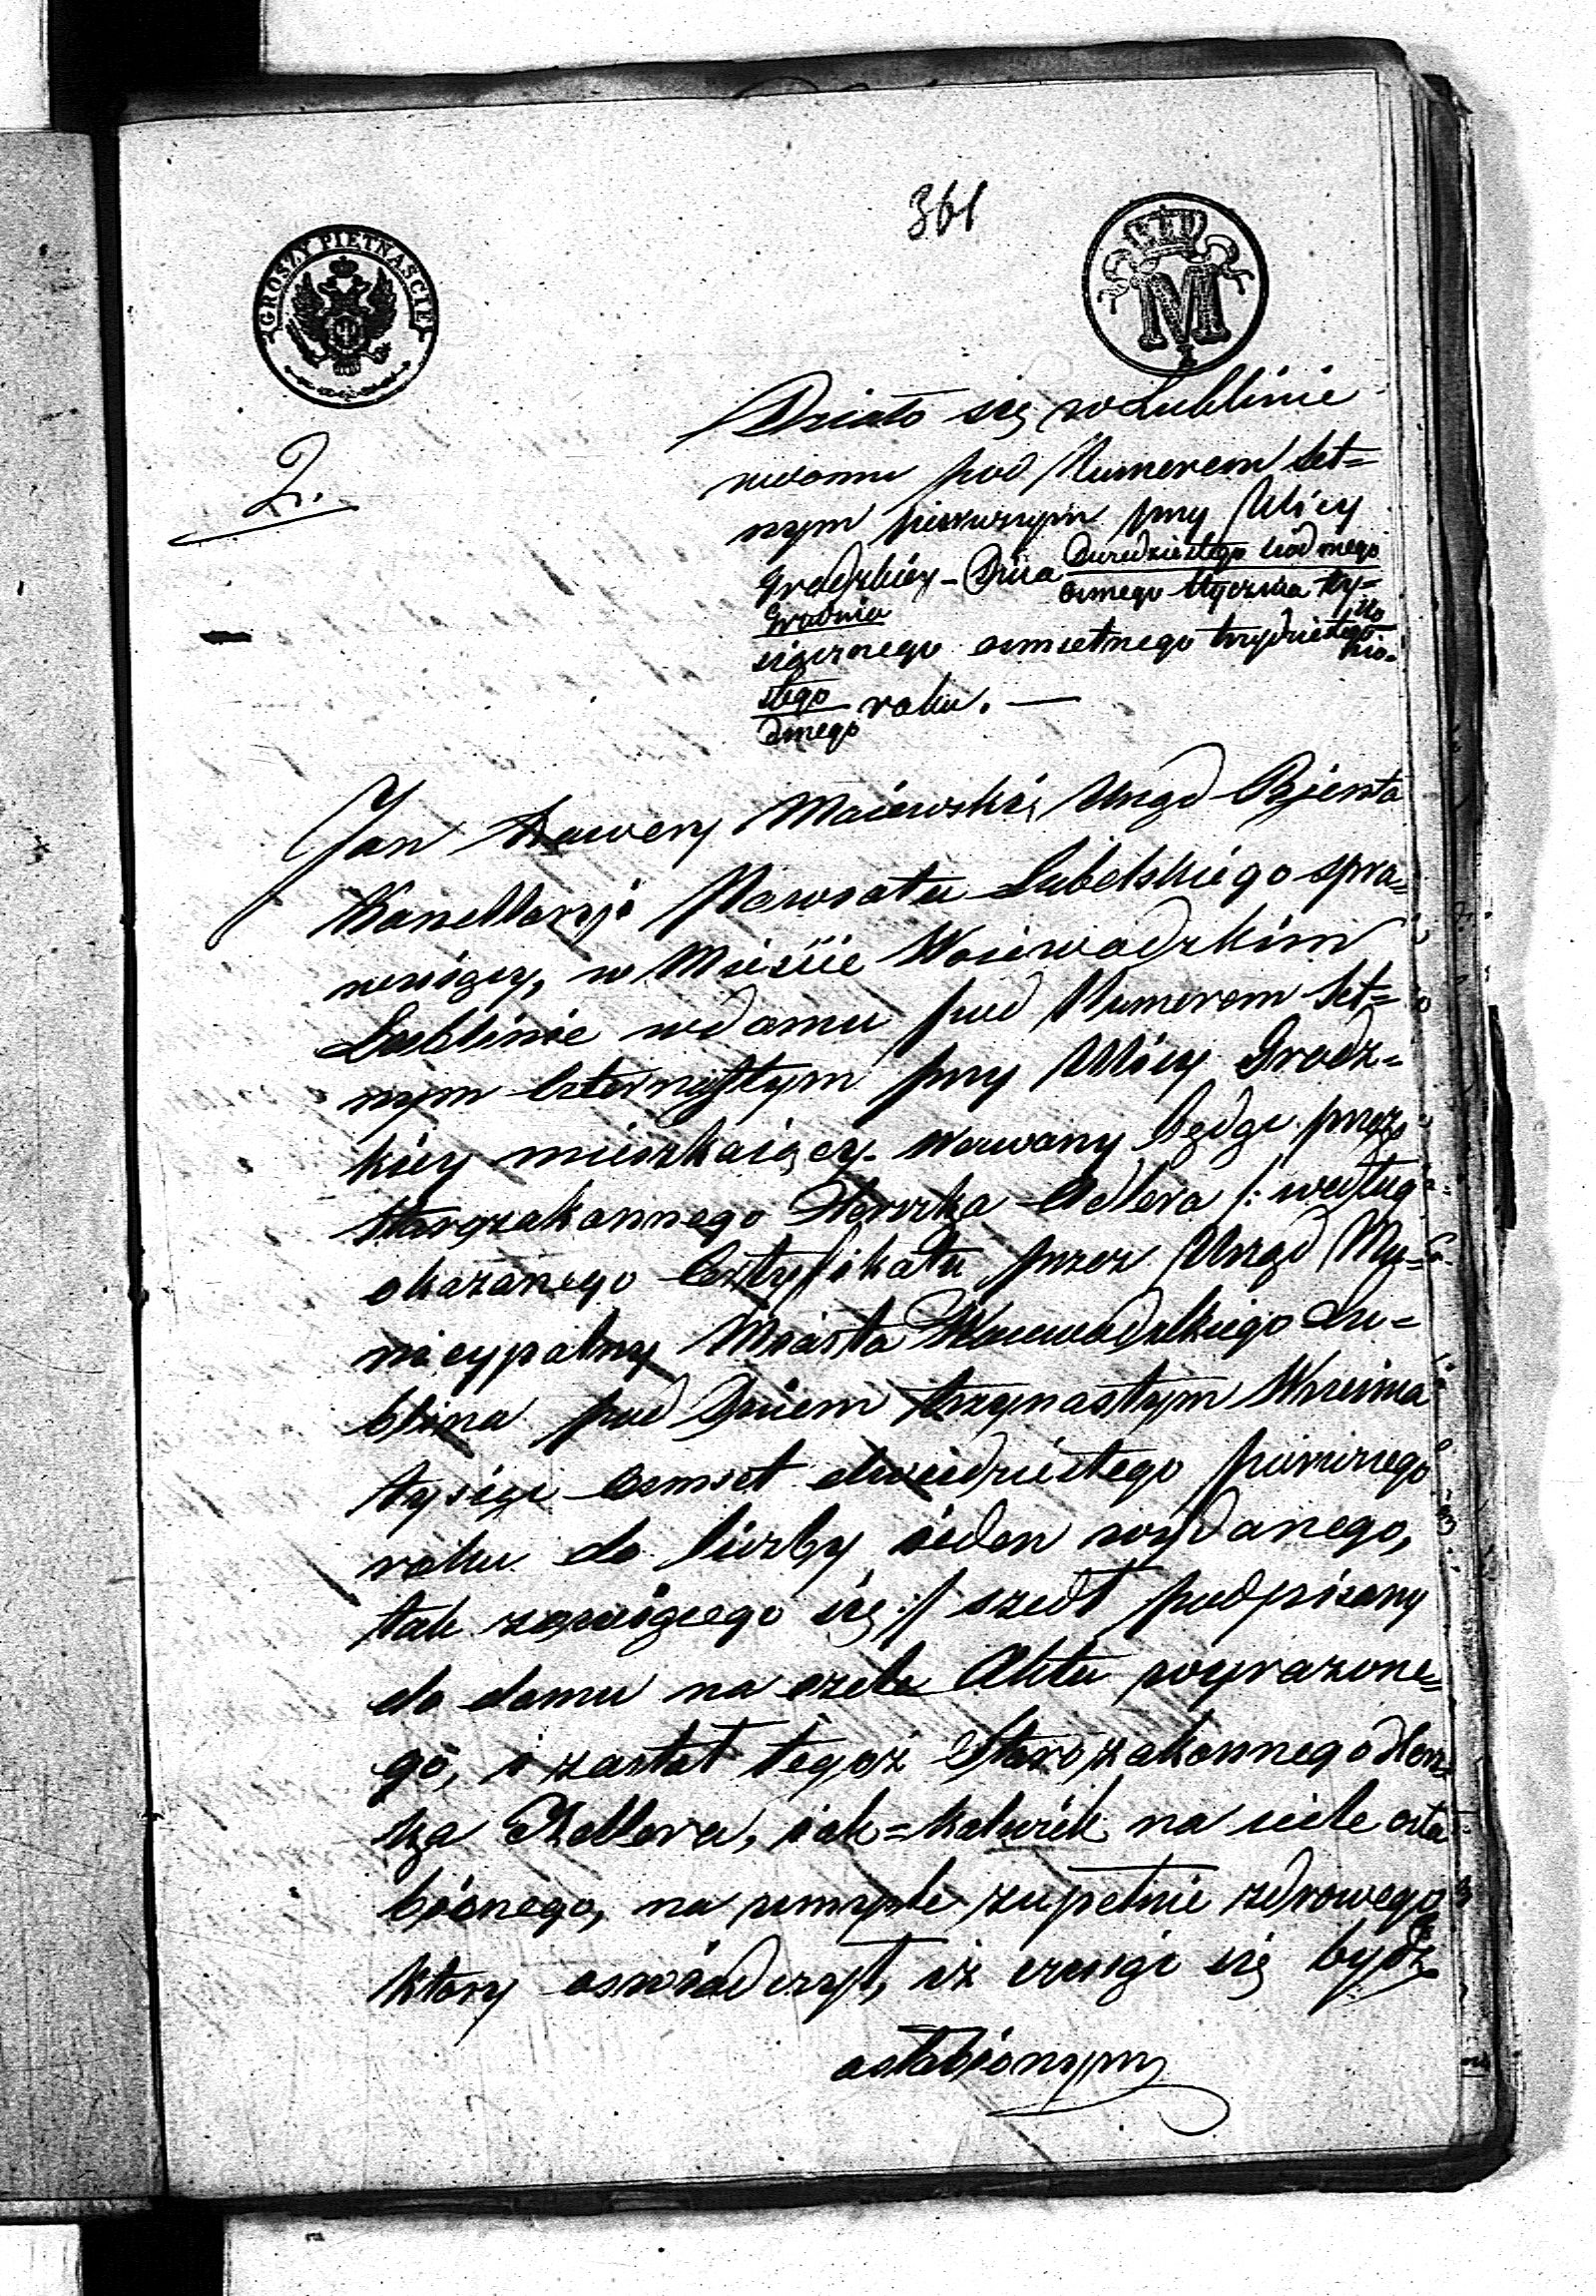 361
GROSZY PIĘTNAŚCIE
M
2.
Działo się w Lublinie
w domu pod Numerem Set=
nym pierwszym przy Ulicy
Grodzkiey - Dnia Dwudziestego siódmego
ósmego Stycznia ty=
Grudnia
siącznego osmsetnego trzydziestego
stego roku. —
dmego
Jan Xawery Maiewski, Urząd Reienta
Kancellaryi Powiatu Lubelskiego spra=
wuiący, w Mieście Woiewodzkim
Lublinie w domu pod Numerem Set=
nym czternastym przy Ulicy Grodz=
kiey mieszkaiący. Wezwany będąc przez
Starozakonnego Herszka Adlera /: według
okazanego Certyfikatu przez Urząd Mu=
nicypalny Miasta Woiewodzkiego Lu=
blina pod Dniem trzynastym Września
tysiąc osmset dwudziestego pierwszego
roku do liczby ieden wydanego,
tak zowiącego się :/ szedł podpisany
do domu na czele Aktu wyrażone=
go, i zastał tegoż Starozakonnego Hersz=
ka Adlera, iak=kolwiek na ciele osła
bionego, na umyśle zupełnie zdrowego
który oswiadczył, iż czuiąc się bydź
osłabionym